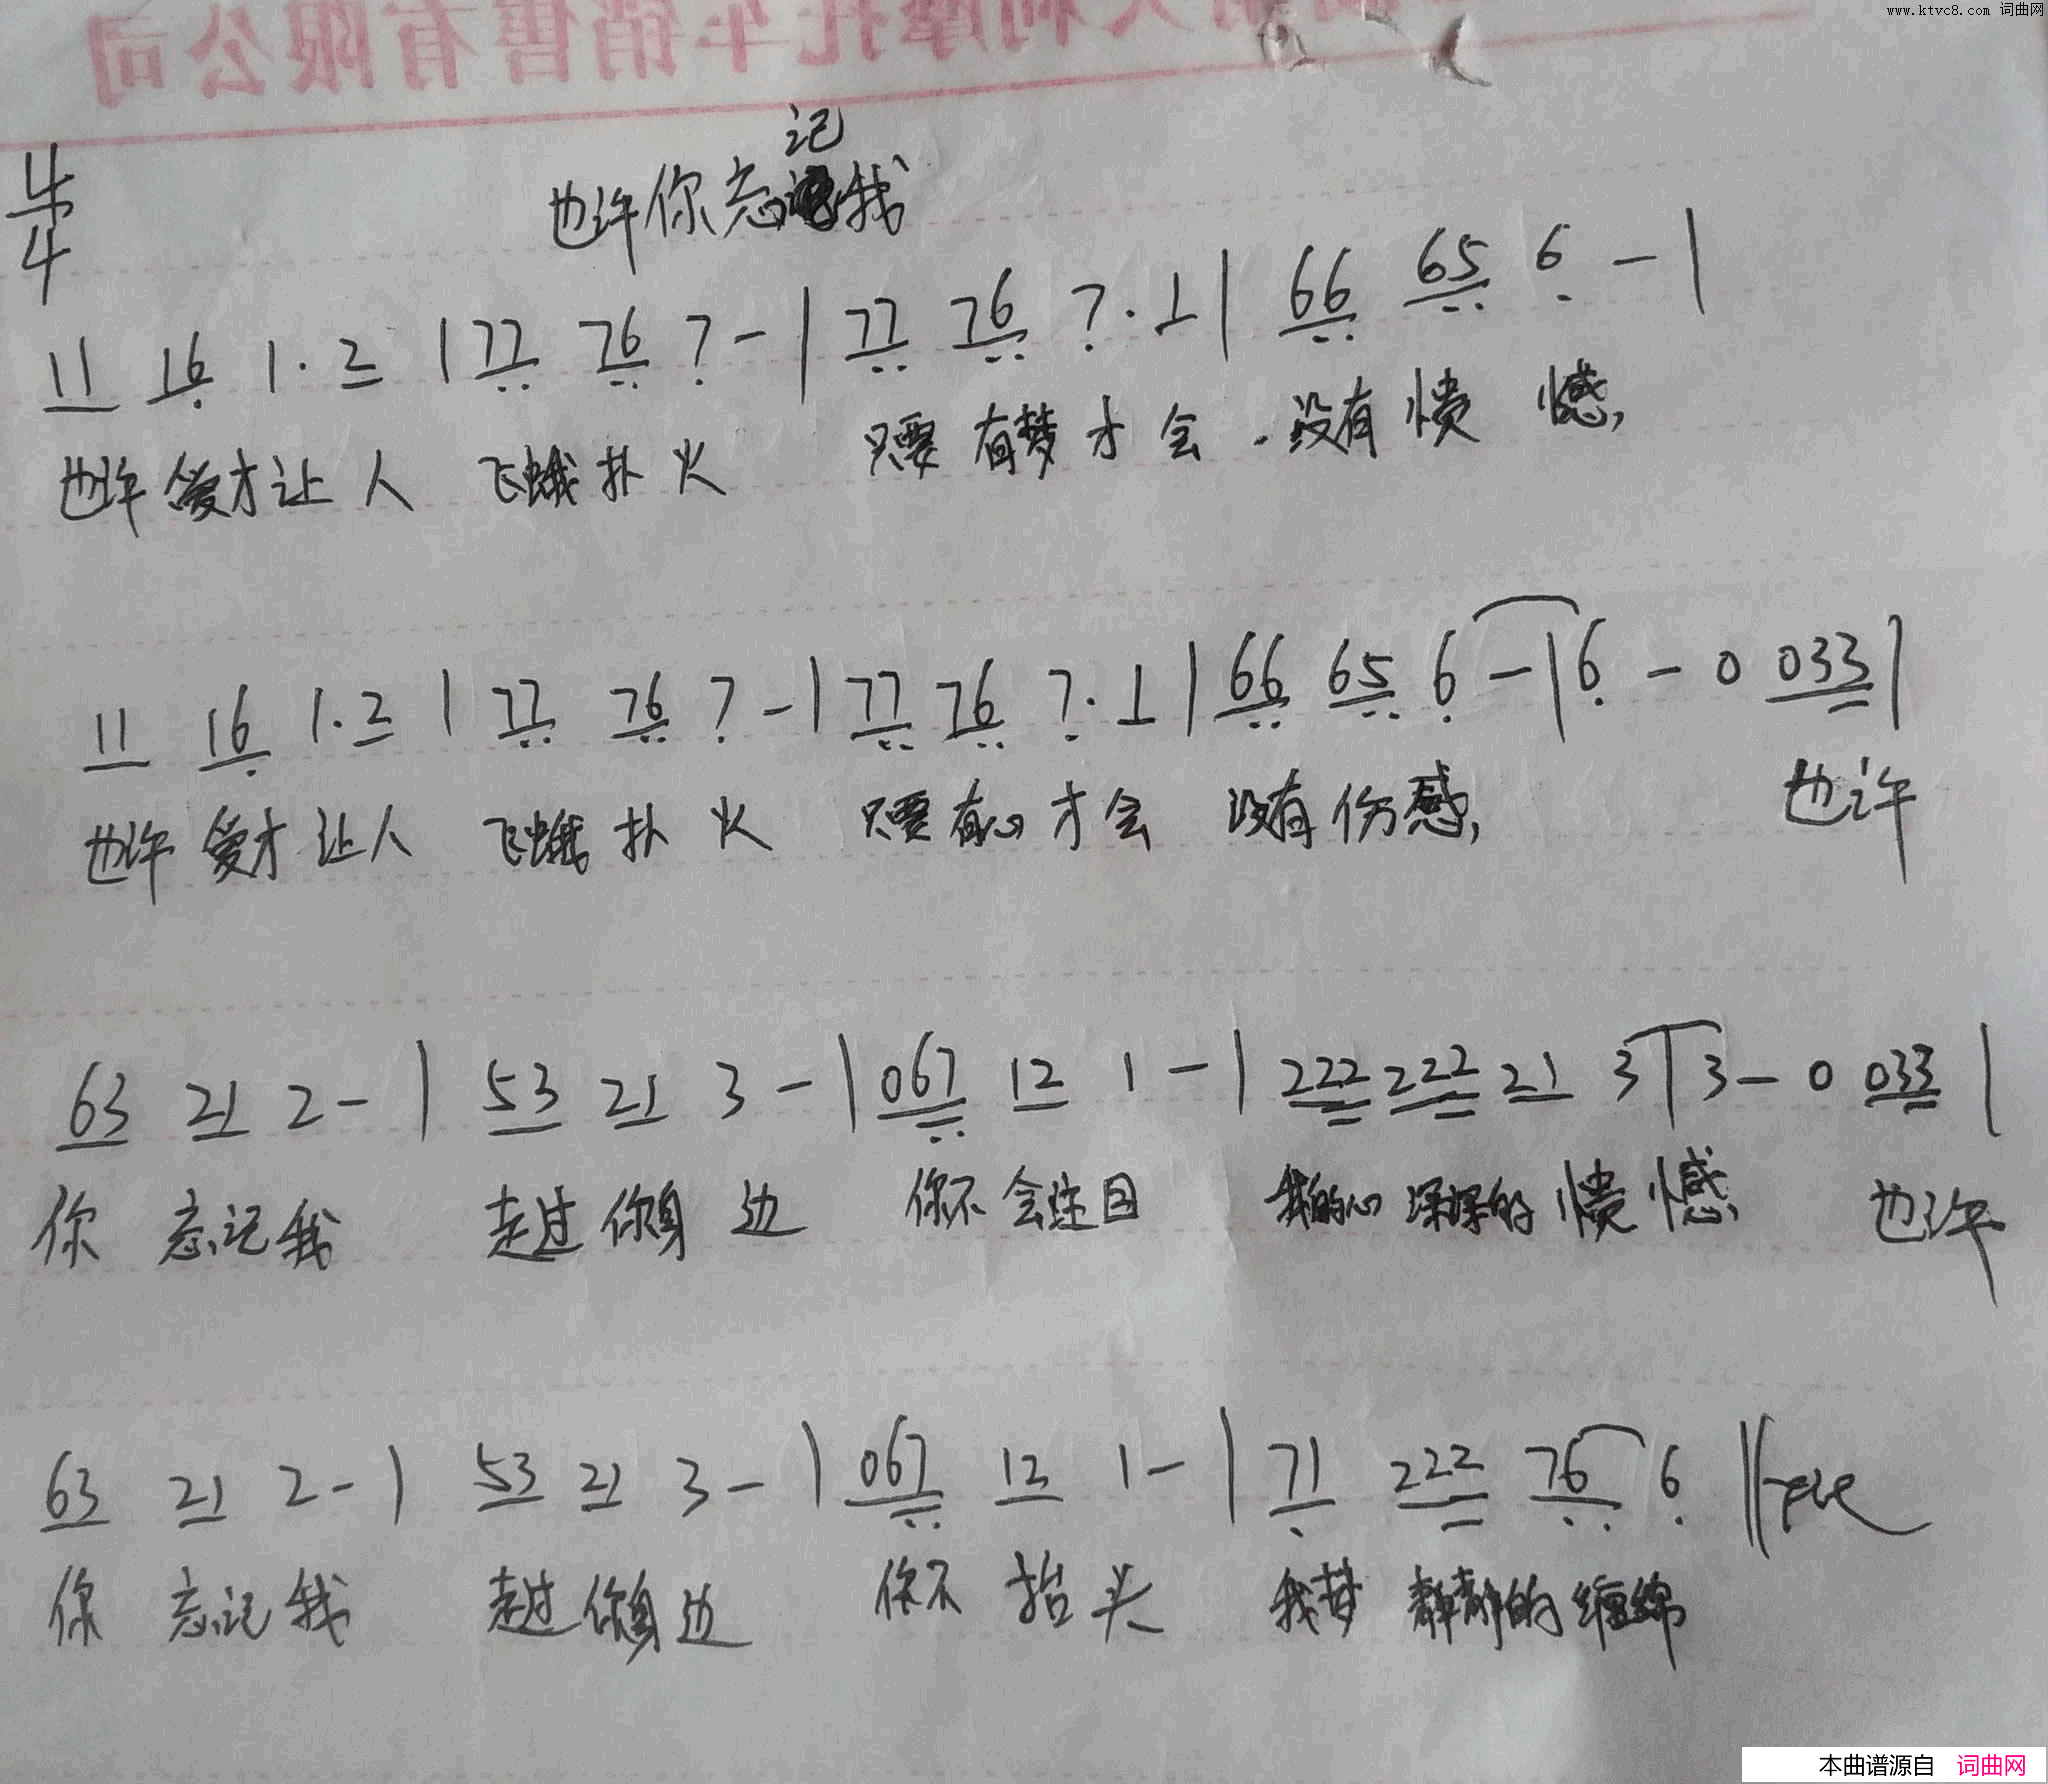 www.ktvc8.com 词曲网
利摩托车销售有限公司
4/4
记
也许你忘我
11 16 1·2 | 77 76 7 - | 77 76 7·1 | 66 65 6 - |
也许爱才让人 飞蛾扑火 只要有梦才会.没有愤憾,
11 16 1·2 | 77 76 7 - | 77 76 7·1 | 66 65 6 - | 6 - 0 033 |
也许爱才让人 飞蛾扑火 只要有心才会 没有伤感, 也许
63 21 2 - | 53 21 3 - | 067 12 1 - | 222 222 21 3 | 3 - 0 033 |
你 忘记我 走过你身边 你不会注目 我的心深深的愤憾, 也许
63 21 2 - | 53 21 3 - | 067 12 1 - | 71 222 76 6 ||
你 忘记我 走过你身边 你不抬头 我梦静静的缠绵
本曲谱源自 词曲网